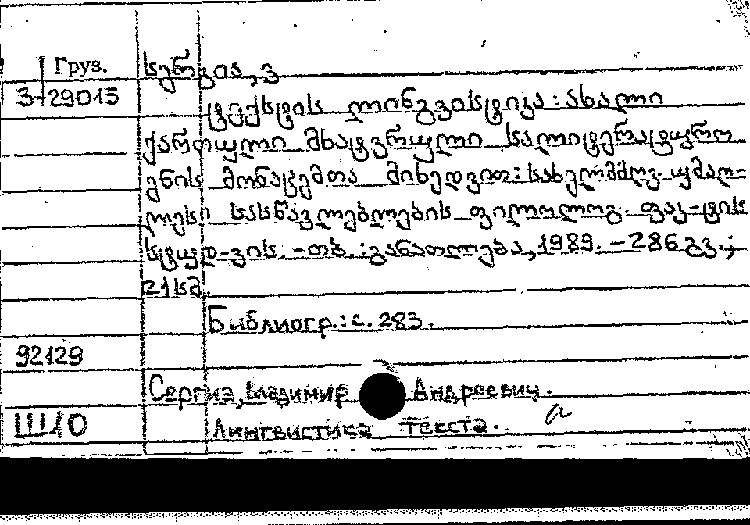 Груз.
სერგია, ვ
3-29015
ტექსტის ლინგვისტიკა : ახალი
ქართული მხატვრული სალიტერატურო
ენის მონაცემთა მიხედვით : სახელმძღვ. უმაღ-
ლესი სასწავლებლების ფილოლოგ. ფაკ-ტის
სტუდ-ვის. - თბ. : განათლება, 1989. - 286 გვ.;
21 სმ.
Библиогр.: с. 283.
92129
Сергиа, Владимир Андреевич.
Ш10
Лингвистика текста.